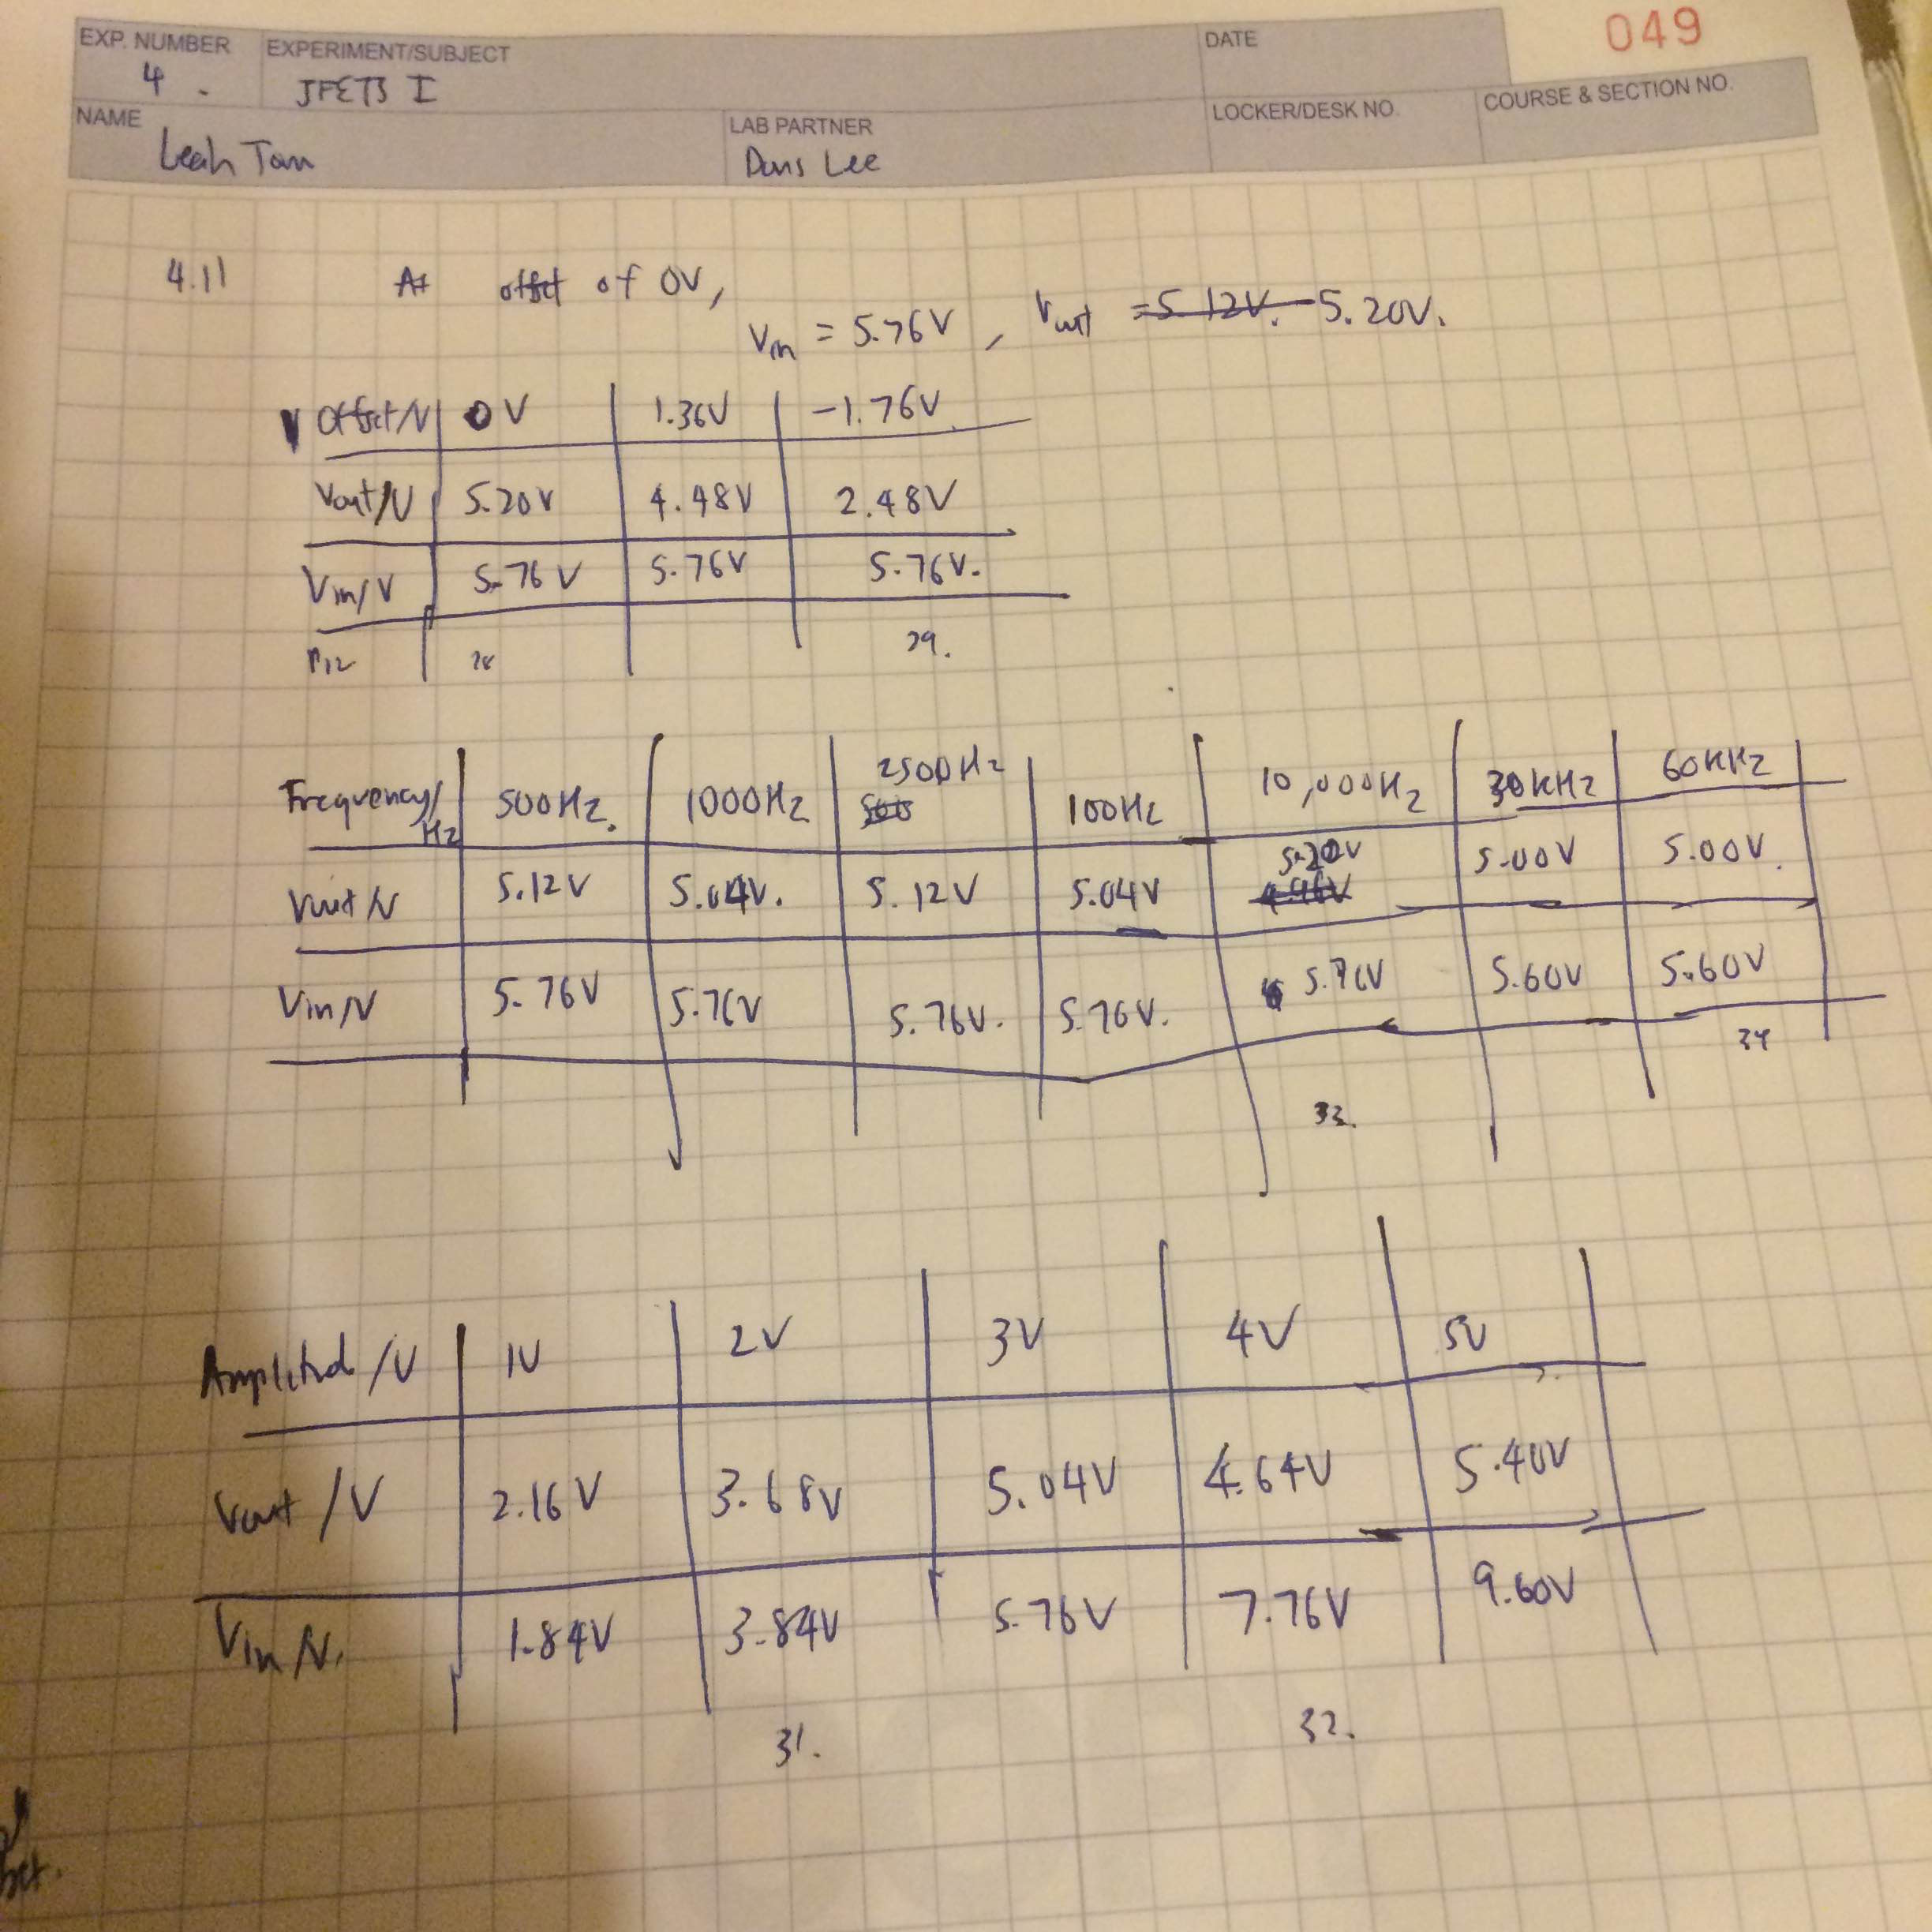 049
EXP. NUMBER EXPERIMENT/SUBJECT DATE
4. JFETs I
NAME LAB PARTNER LOCKER/DESK NO. COURSE & SECTION NO.
Leah Tan Lee
4.11 At offset of 0V,
Vin = 5.76V, Vout = 5.12V. 5.20V.
Offset/V 0V 1.36V -1.76V
Vout/V 5.20V 4.48V 2.48V
Vin/V 5.76V 5.76V 5.76V.
29.
Frequency/Hz 500Hz. 1000Hz 2500Hz 100Hz 10,000Hz 30KHz 60KHz
Vout/V 5.12V 5.04V. 5.12V 5.04V 5.20V 4.96V 5.00V 5.00V.
Vin/V 5.76V 5.76V 5.76V. 5.76V. 5.76V 5.60V 5.60V
33. 34
Amplitud/V 1V 2V 3V 4V 5V
Vout/V 2.16V 3.68V 5.04V 4.64V 5.40V
Vin/V. 1.84V 3.84V 5.76V 7.76V 9.60V
31. 32.